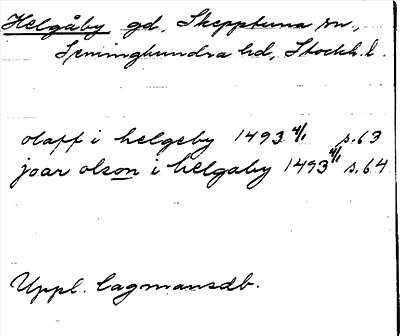 Helgåby gd, Skepptuna sn,
Seminghundra hd, Stockh. l.
olaff i helgeby 1493 4/1 s. 63
joar olson i helgaby 1493 4/1 s. 64
Uppl. lagmansdb.